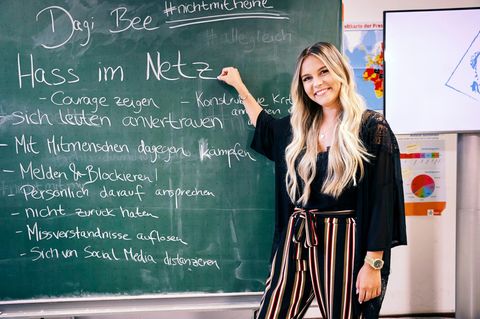 Dagi Bee #nichtmitneine
#allegleich
Hass im Netz
- Courage zeigen - Konstruktive Krit
annehmen
- sich leuten anvertrauen
- Mit Mitmenschen dagegen kämpfen
- Melden & Blockieren!
- Persönlich darauf ansprechen
- nicht zurück haten
- Missverständnisse auflösen
- Sich von Social Media distanzieren